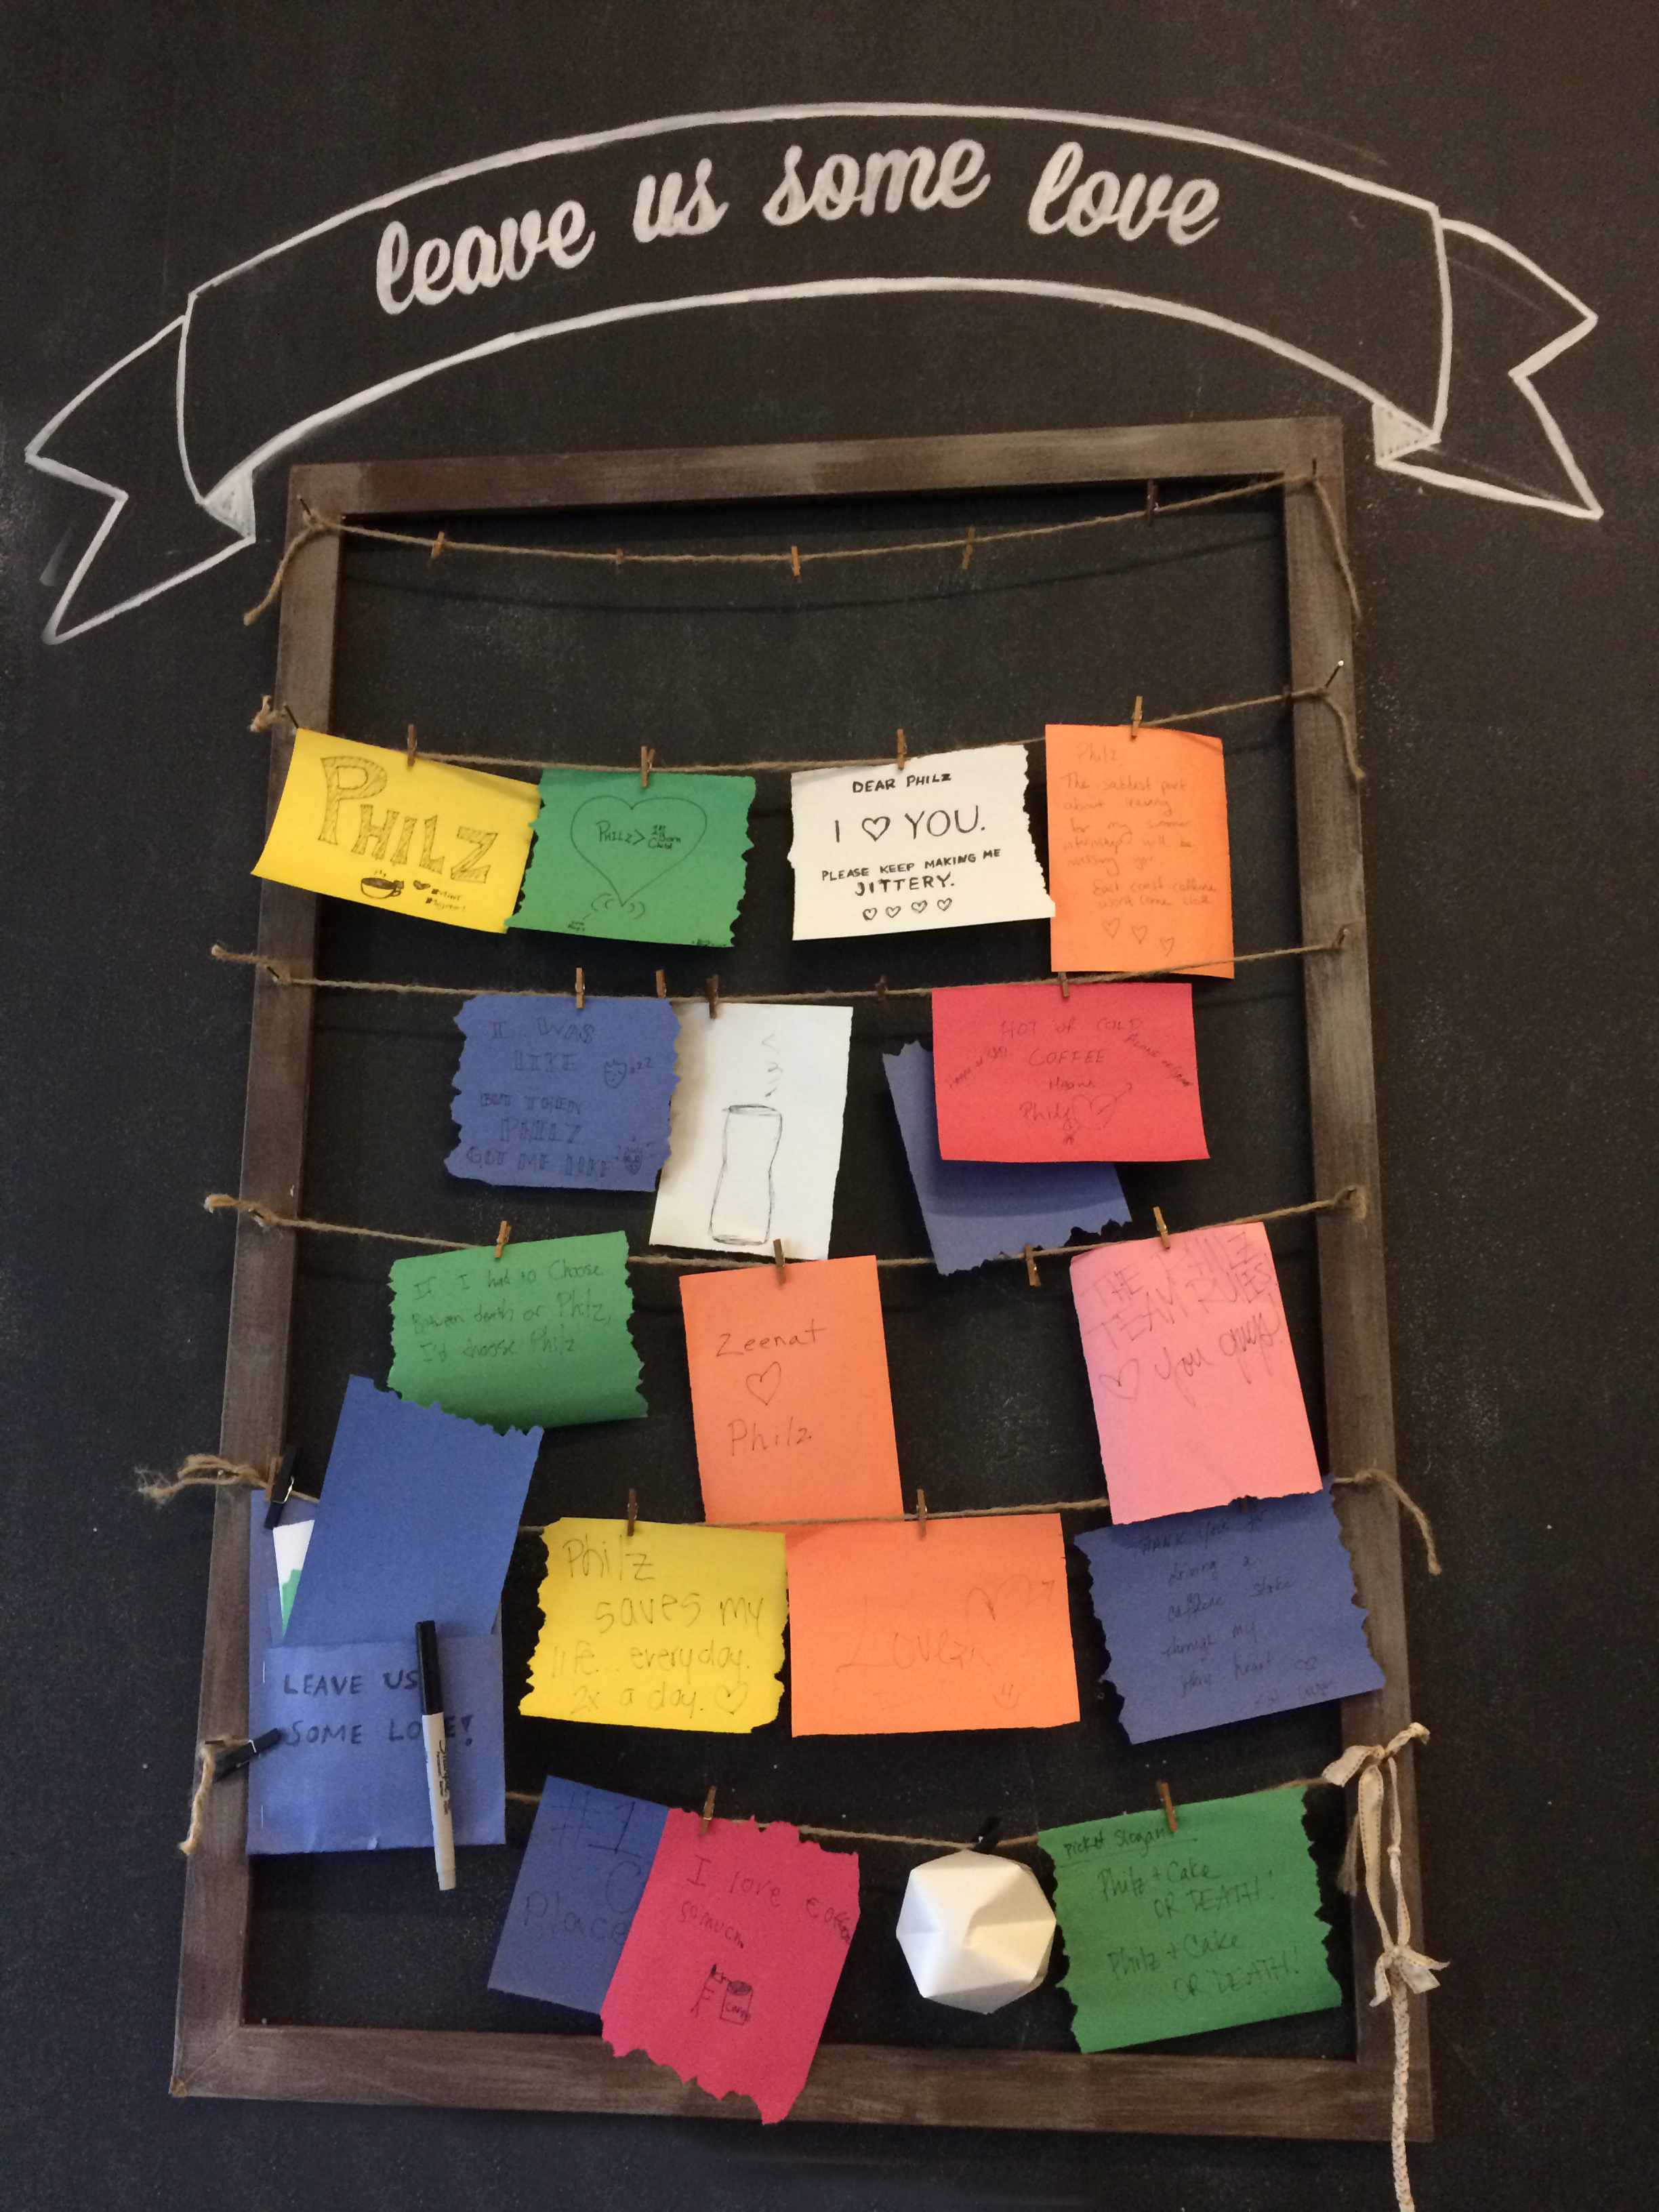 leave us some love
PHILZ
PHILZ >
DEAR PHILZ
I ♡ YOU.
PLEASE KEEP MAKING ME
JITTERY.
♡ ♡ ♡ ♡
Philz,
The saddest part
about leaving
for my summer
internship will be
missing you
East coast caffeine
wont come close
♡ ♡ ♡
I WAS
LIKE
zzz
BUT THEN
PHILZ
GOT ME LIKE
HOT or COLD
COFFEE
Means
Philz
If I had to Choose
Between death or Philz,
I'd choose Philz
Zeenat
♡
Philz
THE PHILZ
TEAM RULES
♡ you guys
LEAVE US
SOME LO E!
Philz
saves my
life... everyday.
2x a day. ♡
THANK YOU
driving a
caffeine stake
through my
heart
#1
C
Place
I love coffee
so much.
Picket Slogan
Philz + Cake
OR DEATH!
Philz + Cake
OR DEATH!